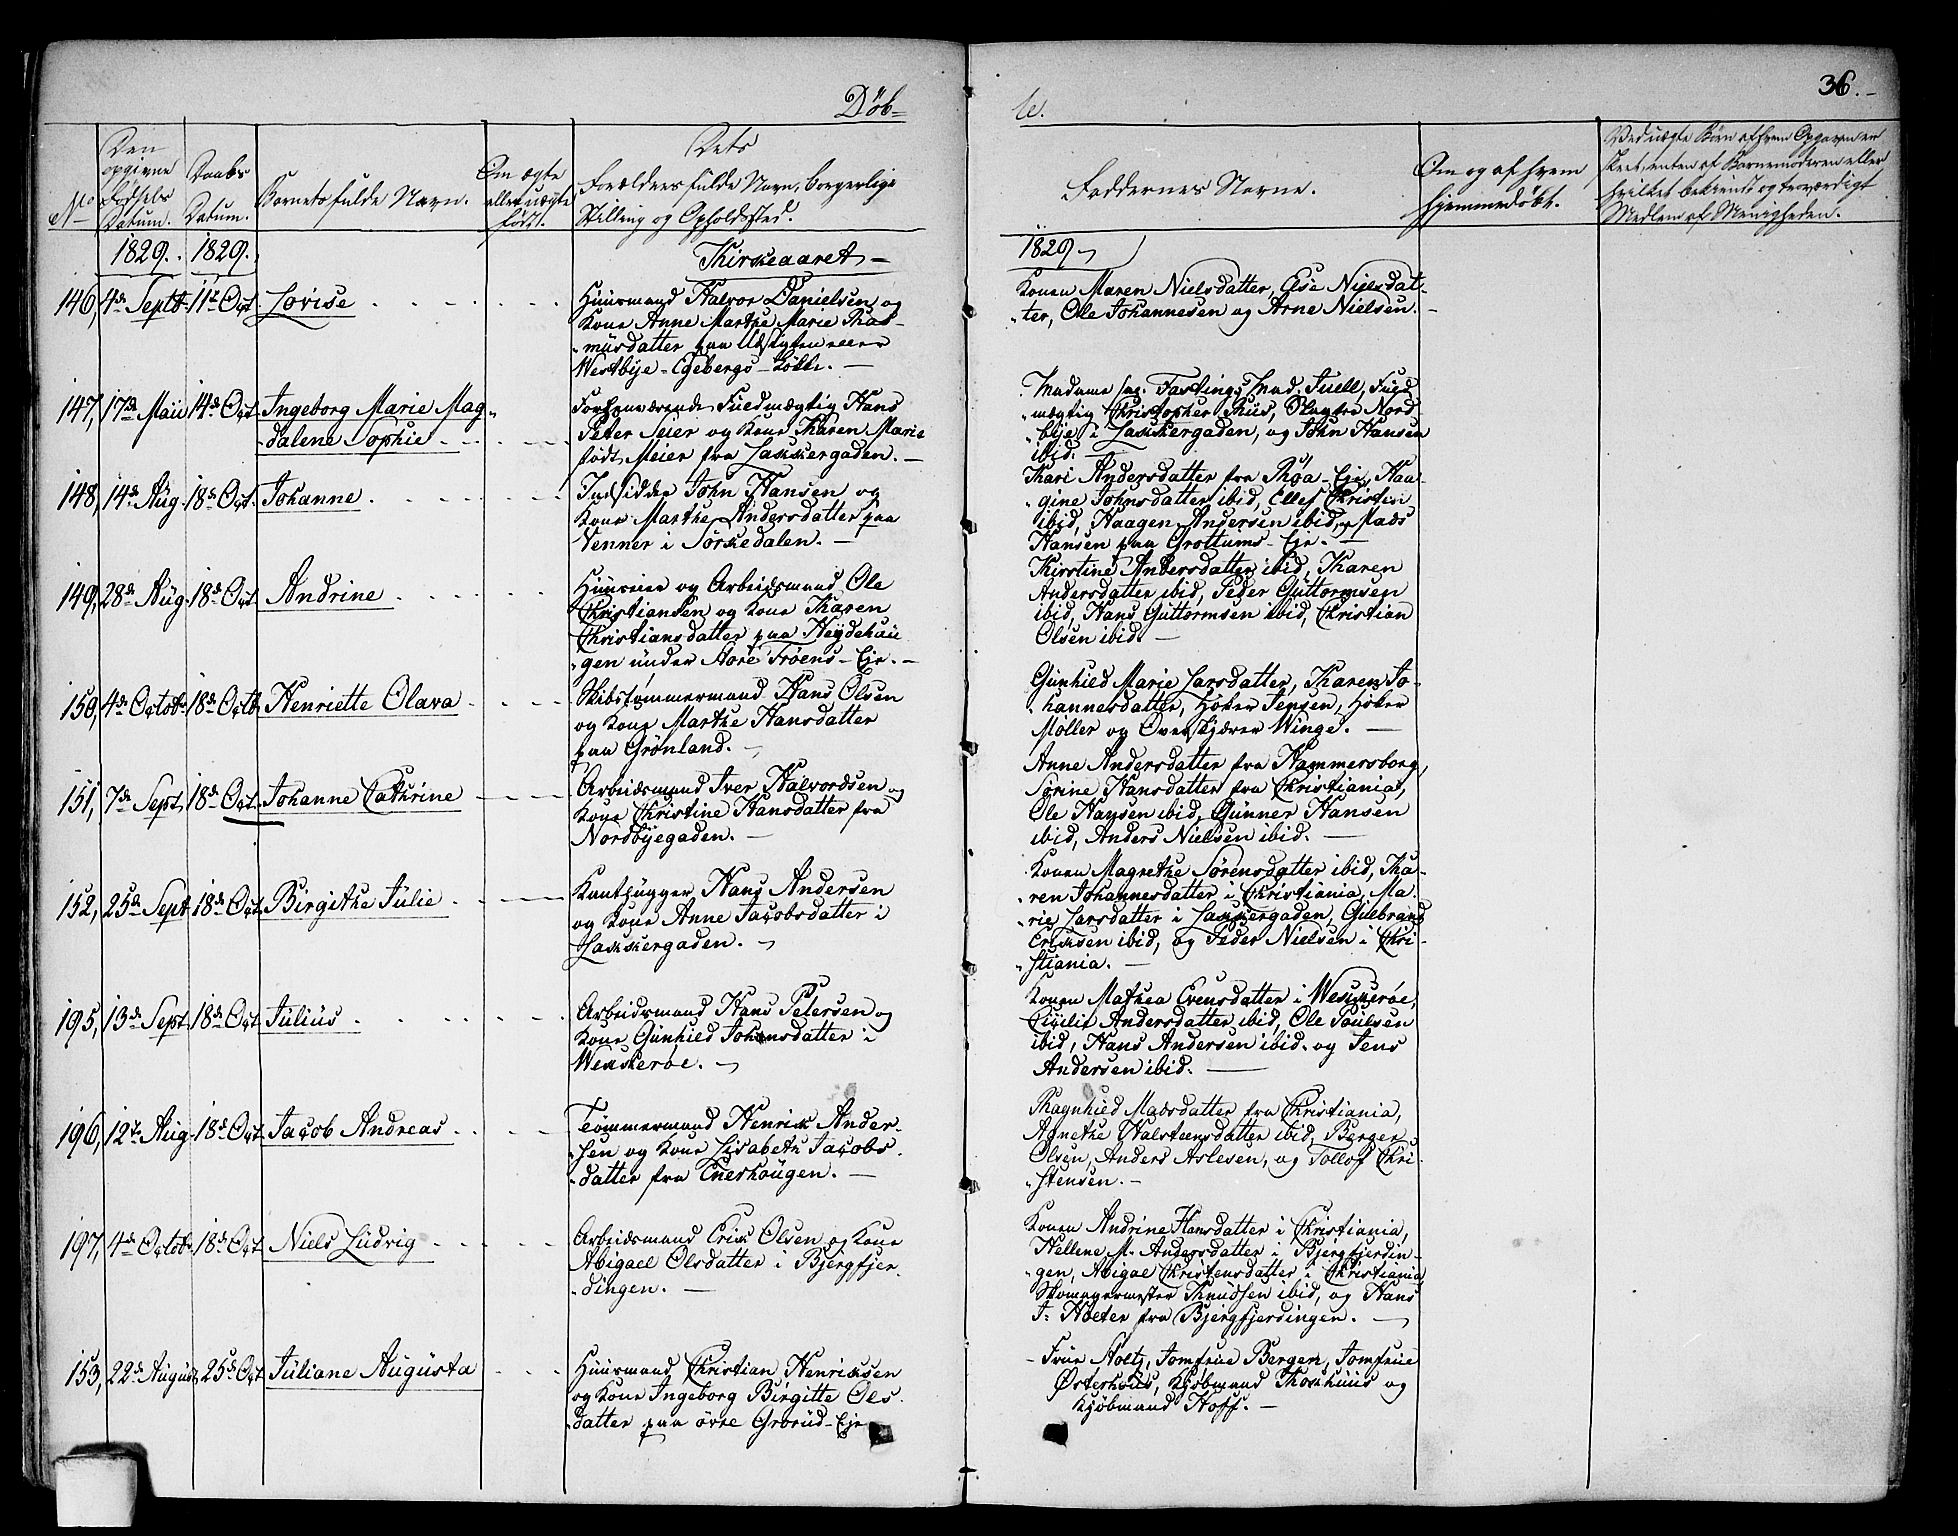 Döb=
e.
36.
No
Den opgivne Fødsels Datum.
Daabs Datum.
Barnets fulde Navn.
Om ægte eller uægte født.
Dets
Forældres fulde Navn, borgerlige
Stilling og Opholdssted.
Faddernes Navne.
Om og af hvem
hjemmedöbt.
Ved uægte Børn af hvem Opgaven er
skeet, enten af Barnemoderen eller
hvilket bekiendt og troværdigt
Medlem af Menigheden.
1829.
1829.
Kirkeaaret
1829
146, 4de Septb. 11te Oct. Lovise
Huusmand Halvor Danielsen og
Kone Anne Marthe Marie Ras-
musdatter paa
Westbye-Egebergs-Løkke.
Konen Maren Nielsdatter, Else Nielsdat-
ter, Ole Johannesen og Arne Nielsen.
147, 17de Maii 14de Oct. Ingeborg Marie Mag-
dalene Sophie
Forhenværende Fuldmægtig Hans
Peter Seier og Kone Karen Marie
født Meier fra Lakkergaden.
Madame Fasting, Mad. Juell, Fuld-
mægtig Christopher Riis, Nord-
bye i Lakkergaden, og John Hansen
ibid.
148, 14de Aug. 18de Oct. Johanne
Indsidder John Hansen og
Kone Marthe Andersdatter paa
Venner i Sørkedalen.
Kari Andersdatter fra Røa-Eje, Haa-
gine Johnsdatter ibid, Ellef Christian
ibid, Haagen Andersen ibid, Mads
Hansen paa Grottums-Eje.
149, 28de Aug. 18de Oct. Andrine
Huuseier og Arbeidsmand Ole
Christiansen og Kone Karen
Christiansdatter paa Heydehau-
gen under Aore Frøens-Eje.
Kirstine Andersdatter ibid, Karen
Andersdatter ibid, Peder Guttormsen
ibid, Hans Guttormsen ibid, Christian
Olsen ibid.
150, 4de Octob. 18de Octb. Henriette Olava
Skibstømmermand Hans Olsen
og Kone Marthe Hansdatter
paa Grönland.
Gunhild Marie Larsdatter, Karen Jo-
hannesdatter, Höker Jensen, Höker
Möller og Overskjærer Winge.
151, 7de Sept. 18de Oct. Johanne Cathrine
Arbeidsmand Iver Halvordsen og
Kone Christine Hansdatter fra
Nordbyegaden.
Anne Andersdatter fra Hammersborg,
Sörine Hansdatter fra Christiania,
Ole Hansen ibid, Gunner Hansen
ibid, Anders Nielsen ibid.
152, 25de Sept. 18de Oct. Birgithe Julie
Kantpugger Hans Andersen
og Kone Anne Jacobsdatter i
Lakkergaden.
Konen Magrethe Sörensdatter ibid, Ka-
ren Johannesdatter i Christiania, Ma-
rie Larsdatter i Lakkergaden, Gulbrand
Eriksen ibid, og Peder Nielsen i Chri-
stiania.
195, 13de Sept. 18de Oct. Julius
Arbeidsmand Hans Petersen og
Kone Gunhild Johansdatter i
Wekkerøe.
Konen Mathea Evensdatter i Wekkerøe,
Cicilie Andersdatter ibid, Ole Poulsen
ibid, Hans Andersen ibid. og Jens
Andersen ibid.
196, 12te Aug. 18de Oct. Jacob Andreas
Tømmermand Henrik Ander-
sen og Kone Lisabeth Jacobs-
datter fra Enerhougen.
Ragnhild Madsdatter fra Christiania,
Agnethe Halsteensdatter ibid, Berger
Olsen, Anders Aslesen, og Tollof Chri-
stensen.
197, 4de Octob. 18de Oct. Niels Ludvig
Arbeidsmand Erik Olsen og Kone
Abigael Olsdatter i Bjergfjer-
dingen.
Konen Andrine Hansdatter i Christiania,
Hellene M. Andersdatter i Bjergfjerdin-
gen, Abigal Christensdatter i Christiania
Skomagermester Knudsen ibid, og Hans
J. Hoeter fra Bjergfjerdingen.
153, 22de August 25de Oct. Juliane Augusta
Huusmand Christian Henriksen
og Kone Ingeborg Birgitte Ols-
datter paa øvre Grorud-Eje
Frue Holtz, Jomfrue Bergen, Jomfrue
Østerhous, Kjöbmand Thorhuus og
Kjöbmand Hoff.